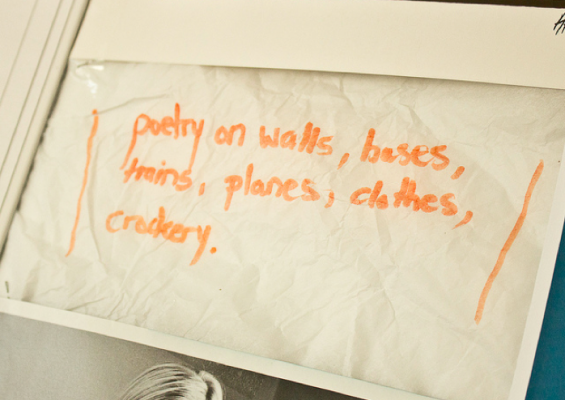 poetry on walls, buses,
trains, planes, clothes,
crockery.